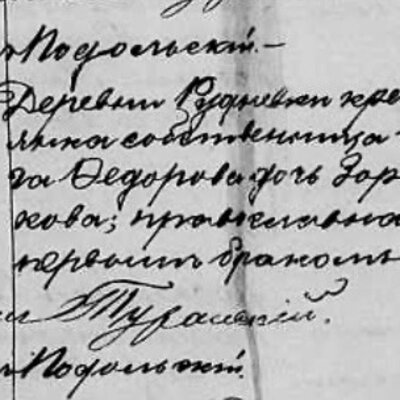 Подольскій.-
Деревни Рудневки кре
янка собственница
га Ѳедорова дочь Зор
кова; православна
первымъ бракомъ
Подольскій.